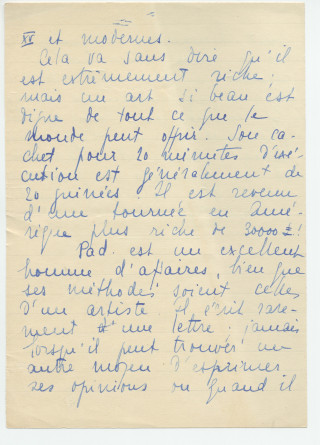 XX et modernes.
Cela va sans dire qu'il
est extrêmement riche;
mais un art si beau est
digne de tout ce que le
monde peut offrir. Son ca-
chet pour 20 minutes d'exé-
cution est généralement de
20 guinées. Il est revenu
d'une tournée en Amé-
rique plus riche de 30000 £!
Pad. est un excellent
homme d'affaires, bien que
ses méthodes soient celles
d'un artiste. Il écrit rare-
ment une lettre; jamais
lorsqu'il peut trouver un
autre moyen d'exprimer
ses opinions ou quand il